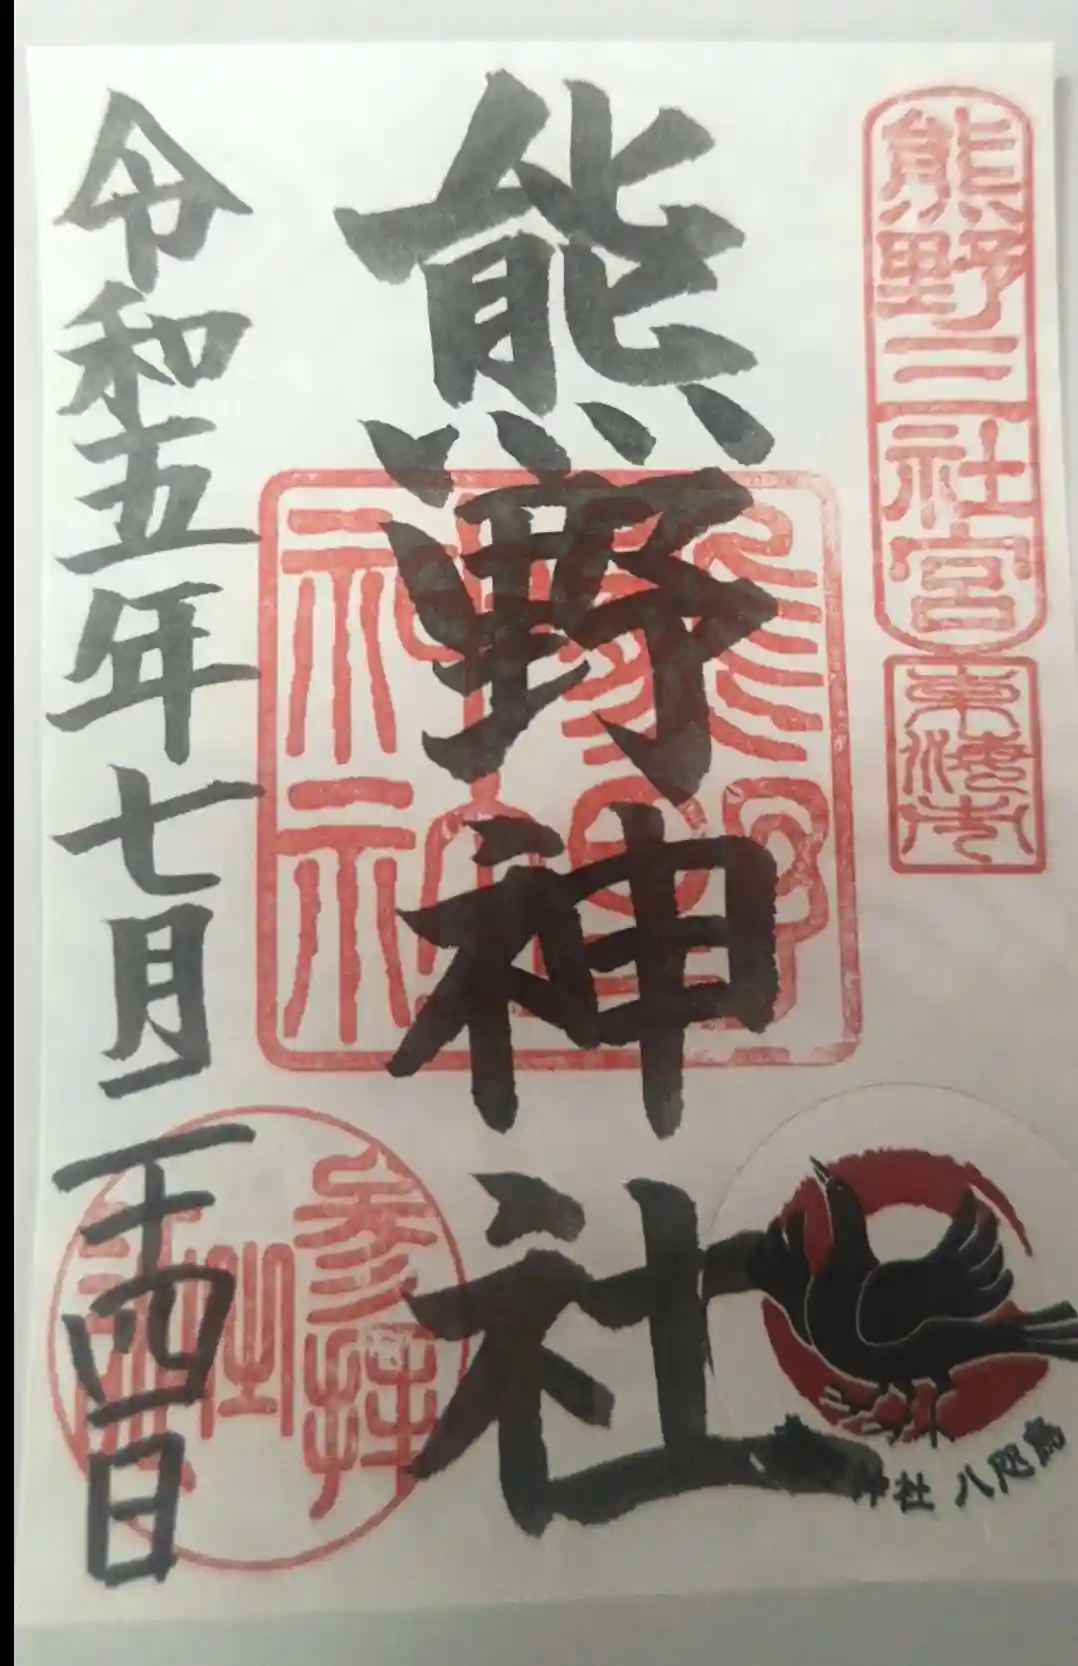 熊野三社宮
東海市
熊野神社
熊野神社
神社 八咫烏
参拝
令和五年七月二十四日